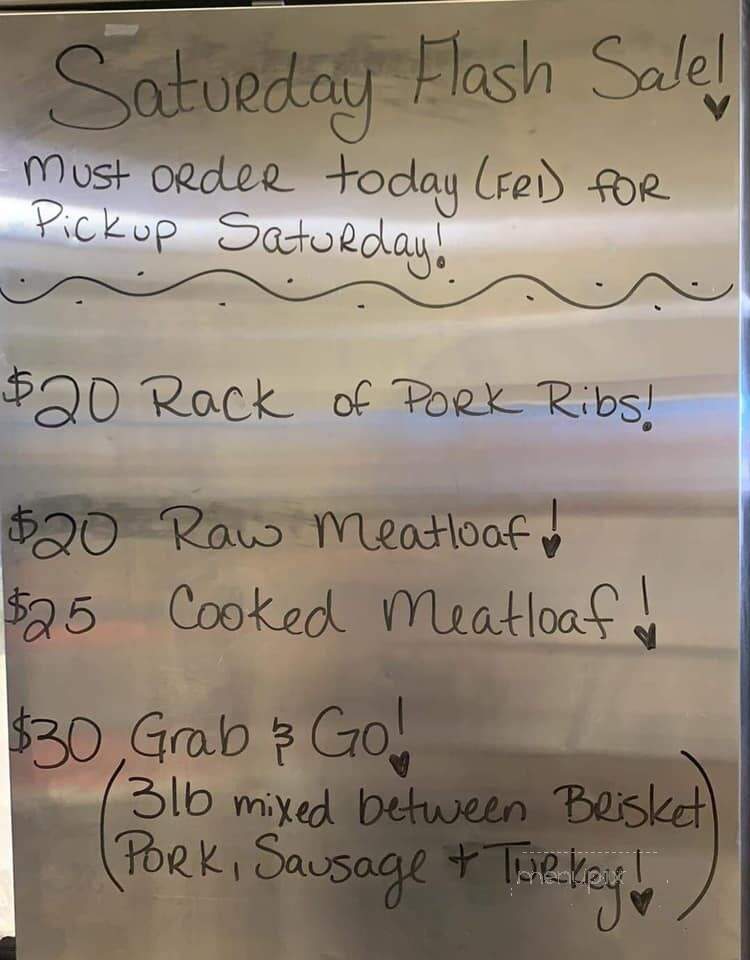 Saturday Flash Sale!
Must order today (FRI) for
Pickup Saturday!
$20 Rack of Pork Ribs!
$20 Raw Meatloaf!
$25 Cooked Meatloaf!
$30 Grab & Go!
(3lb mixed between Brisket
Pork, Sausage + Turkey!)
menupix